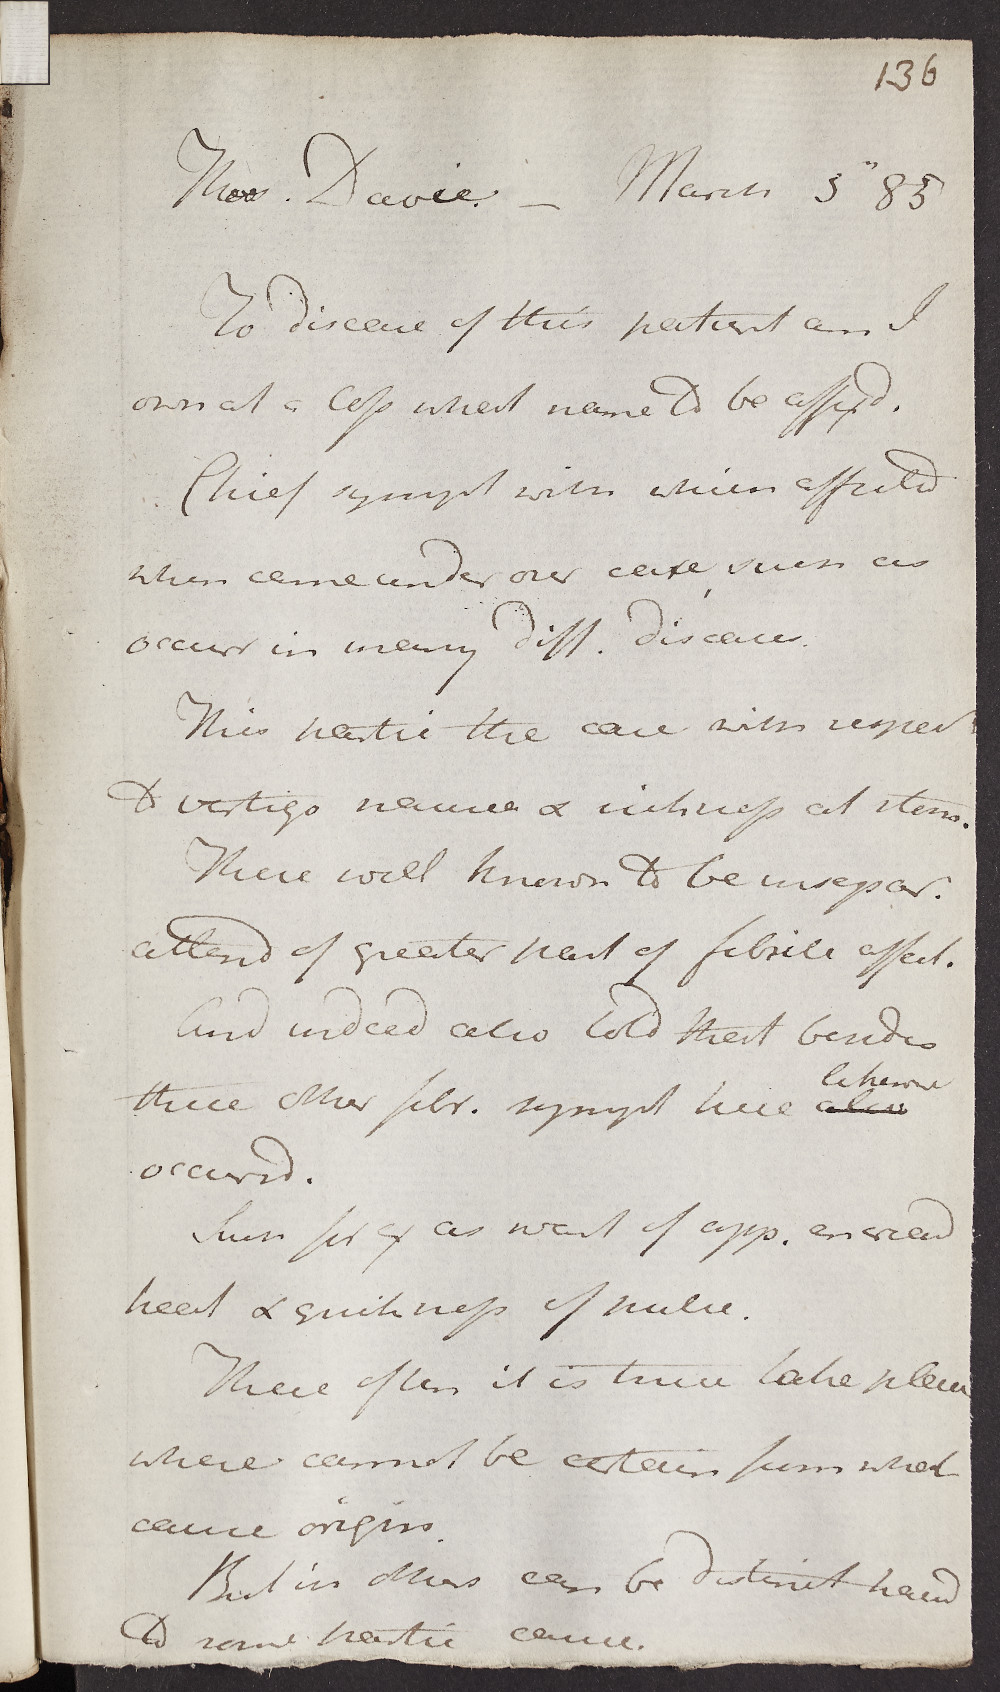 136
Thos. Davie. — March 5" 85
To disease of this patient am I
own at a loss what name to be affixd.
Chief sympt with which affected
when came under our care, such as
occurr in many diff. diseases.
This partic the case with respect
to vertigo nausea & sickness at stom.
These well known to be insepar.
attend of greater part of febrile affect.
And indeed also told that besides
these other febr. sympt here likewise
occurrd.
Such for ex as want of app. encreasd
heat & quickness of pulse.
These often it is true take place
where cannot be certain from what
cause origin.
But in others can be distinct tracd
to some partic cause.